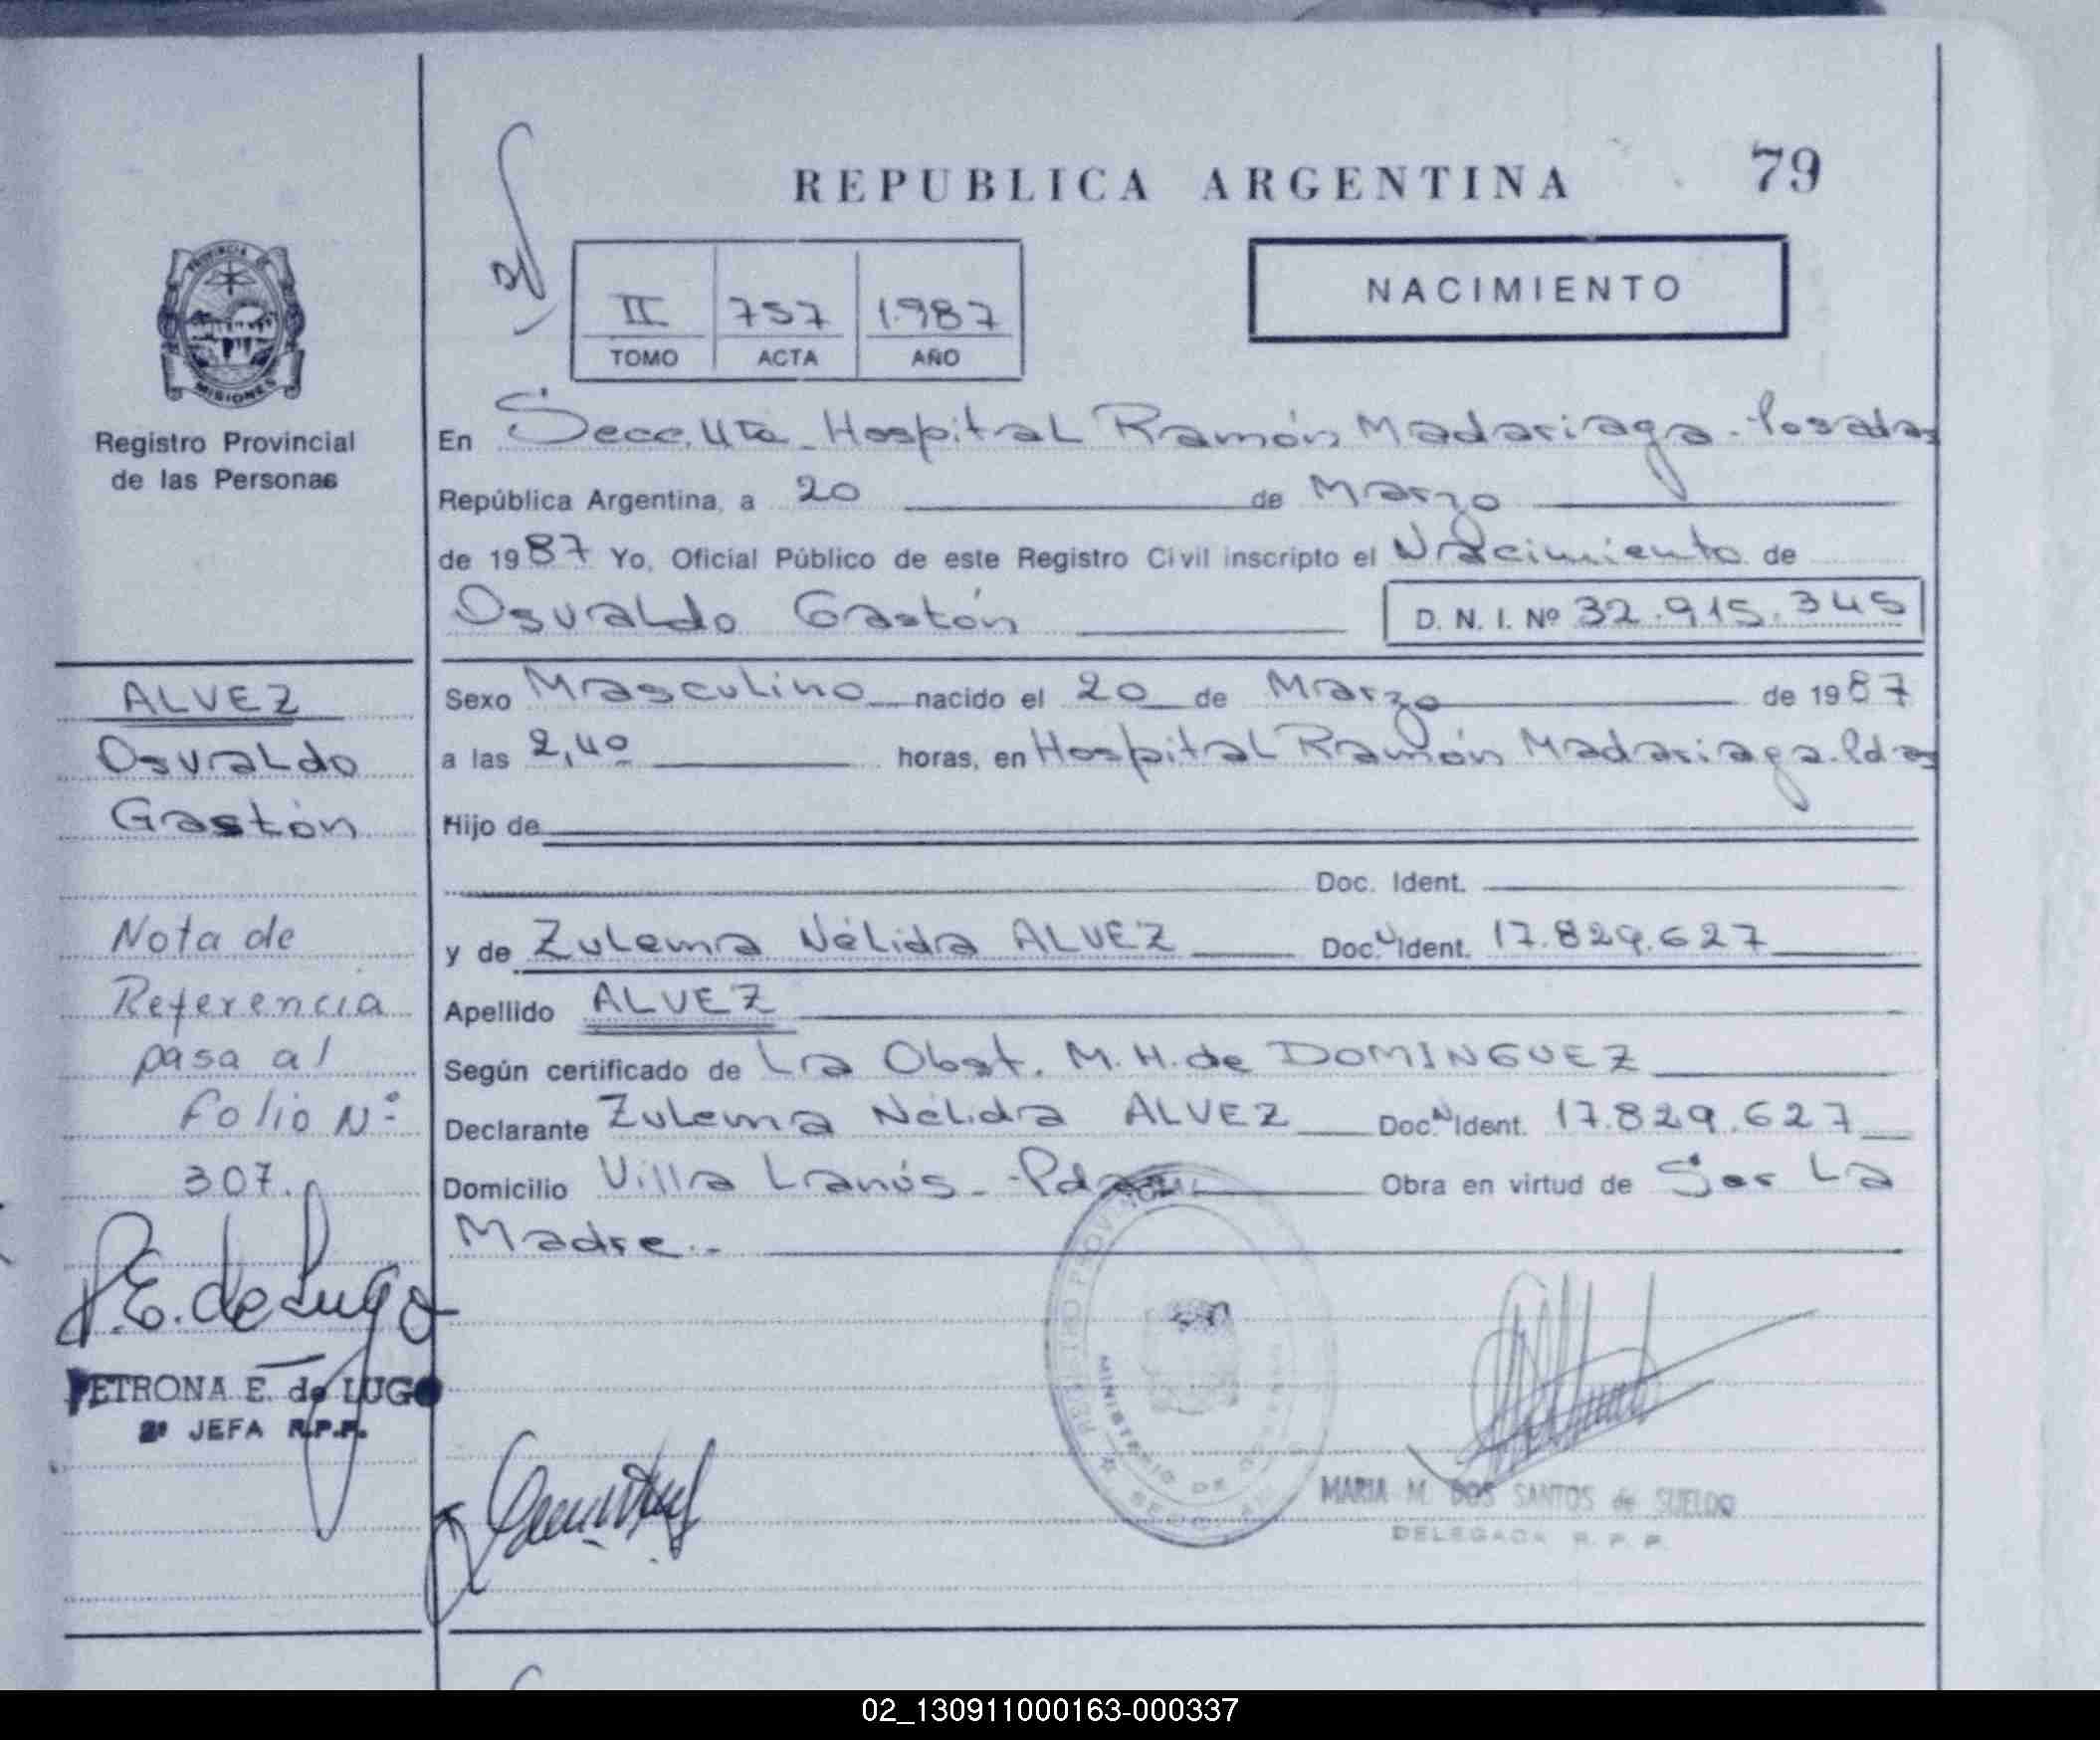 REPUBLICA ARGENTINA
79
NACIMIENTO
II 757 1.987
TOMO ACTA AÑO
PROVINCIA DE
MISIONES
Registro Provincial
de las Personas
En Secc. 4ta - Hospital Ramón Madariaga - Posadas
República Argentina, a 20 de Marzo
de 1987 Yo, Oficial Público de este Registro Civil inscripto el Nacimiento de
Osvaldo Gastón D. N. I. Nº 32.915.345
Sexo Masculino nacido el 20 de Marzo de 1987
a las 2,40 horas, en Hospital Ramón Madariaga. Pdas
Hijo de
Doc. Ident.
y de Zulema Nélida ALVEZ Doc. Ident. 17.829.627
Apellido ALVEZ
Según certificado de La Obst. M. H. de DOMINGUEZ
Declarante Zulema Nélida ALVEZ Doc. N Ident. 17.829.627
Domicilio Villa Lanús - Pdas Obra en virtud de Ser La
Madre.-
ALVEZ
Osvaldo
Gastón
Nota de
Referencia
pasa al
Folio Nº
307.
P.E. de Lugo
PETRONA E. de LUGO
2ª JEFA R.P.P.
MINISTERIO DE
MARIA M. DOS SANTOS de SUELDO
DELEGADA R. P. P.
02_130911000163-000337